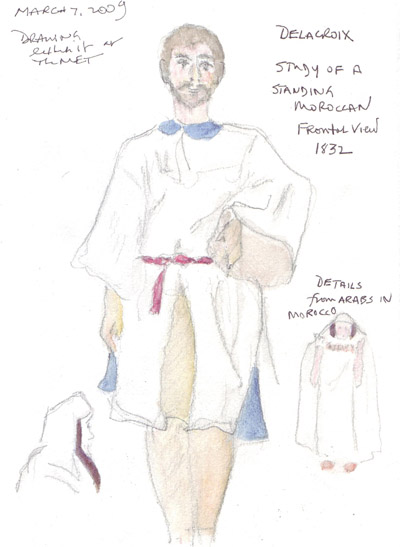 MARCH 7, 2009
DRAWING
exhibit at
THE MET
DELACROIX
STUDY OF A
STANDING
MOROCCAN
FRONTAL VIEW
1832
DETAILS
from ARABS IN
MOROCCO